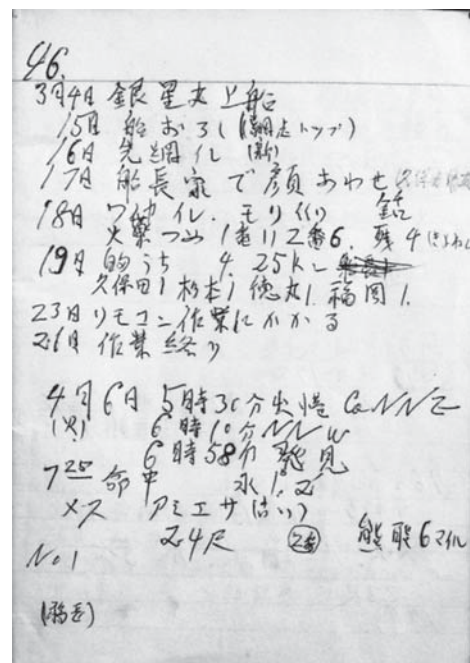 46.
3月4日 銀星丸上船
15日 船おろし(網走トップ)
16日 先綱イレ (新)
17日 船長家で顔あわせ
18日 ワ イレ. モリ作り 銛
火薬つみ 1番11 2番6. 残4
19日 的うち 4. 25kレ
久保田1 杉本1 徳丸1. 福岡1.
23日 リモコン作業にかかる
26日 作業終り
4月6日 5時30分出港 CoNNE
(火) 6時10分NNW
6時58分発見
7 25 命中 水1.2
メス アミエサ
24尺 熊 6マイル
No1